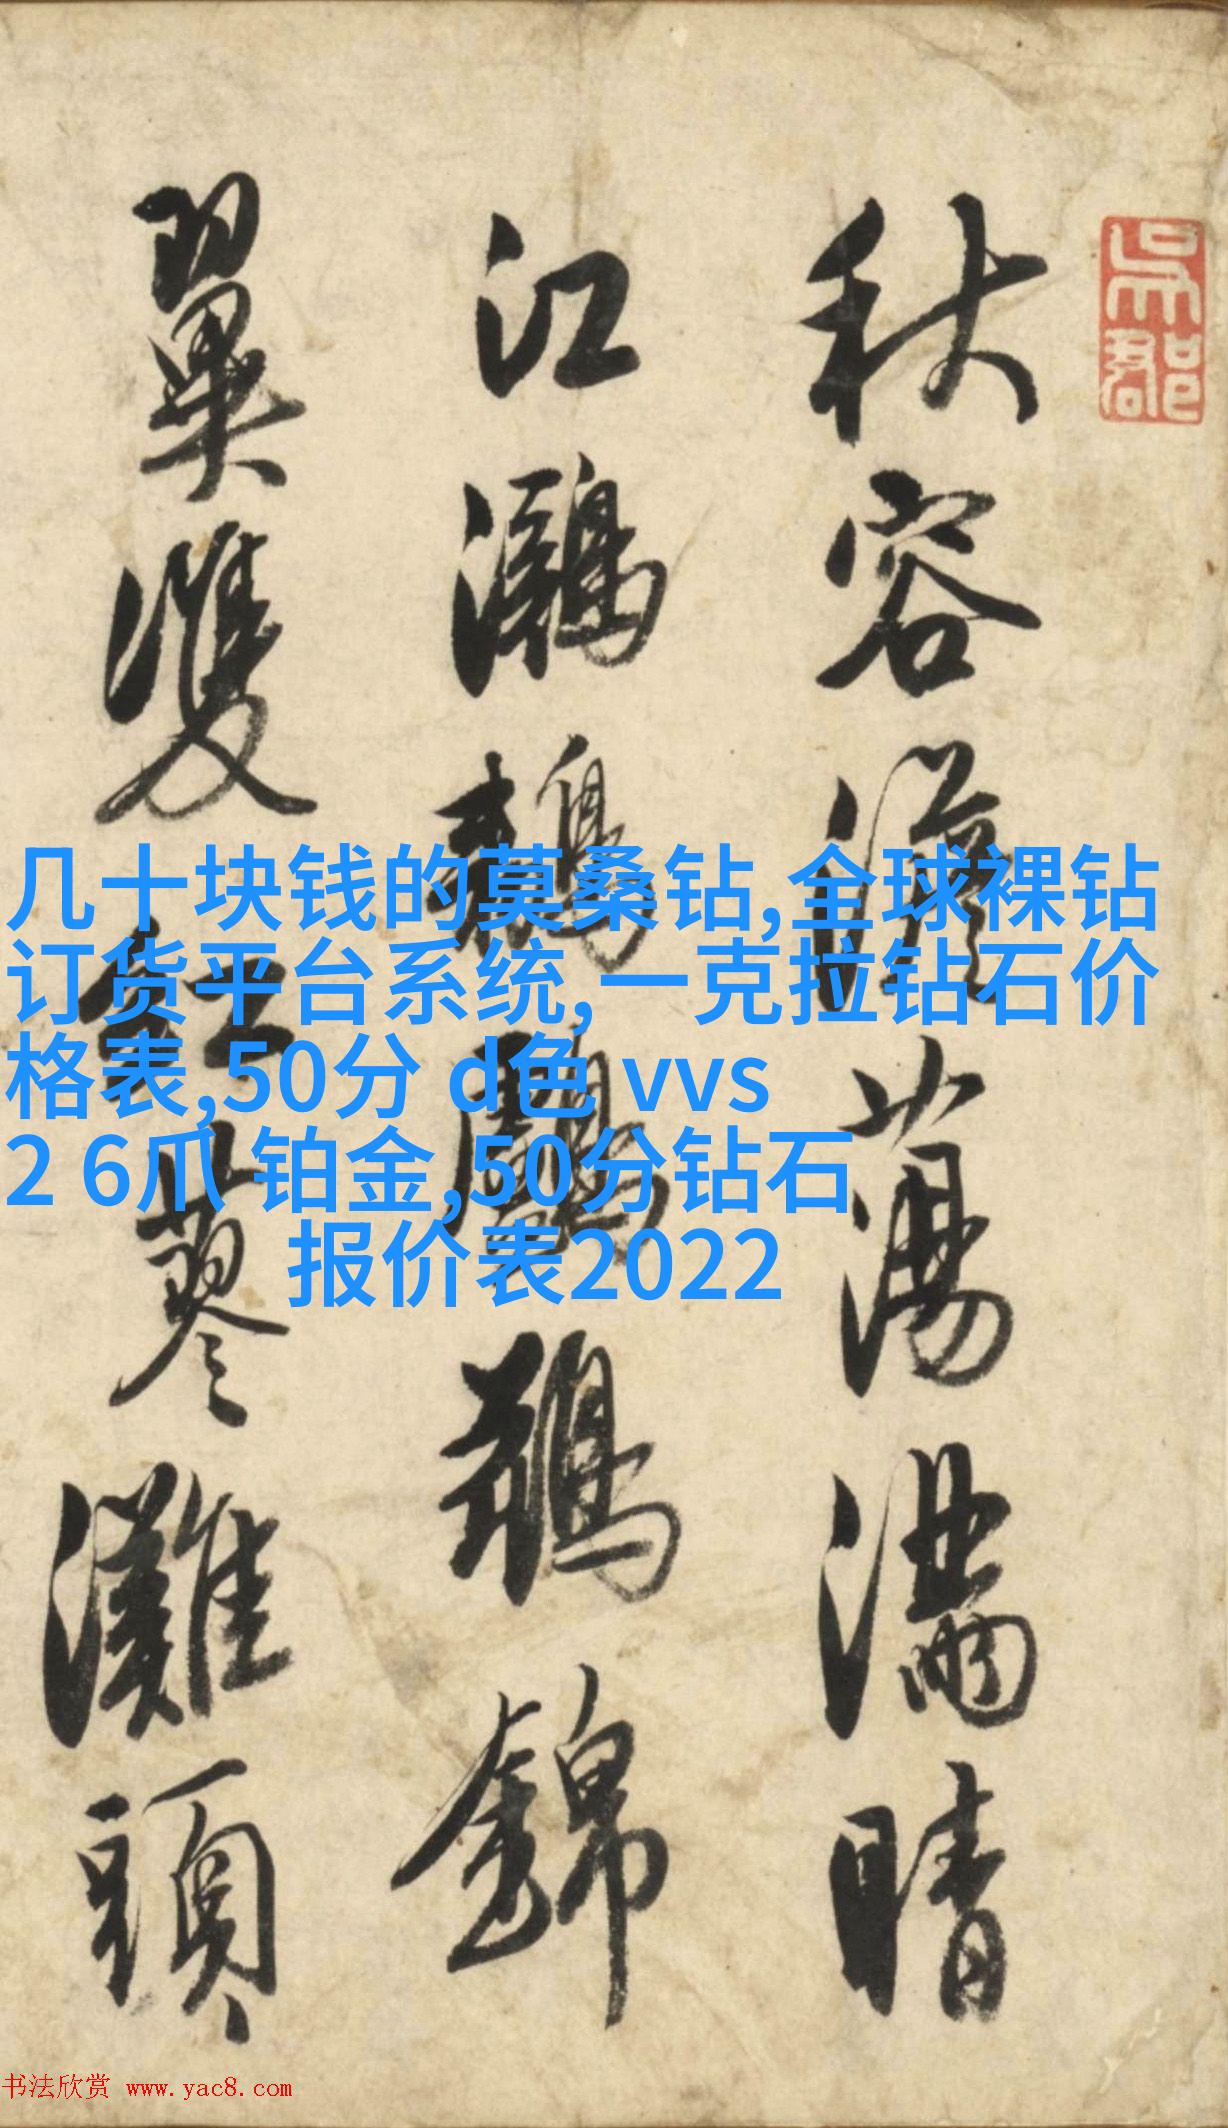 吳郡
秋容澹蕩滿晴
江鸂鶒鸊鵜錦
翼雙紅蓼灘頭
几十块钱的莫桑钻,全球裸钻
订货平台系统,一克拉钻石价
格表,50分 d色 vvs
2 6爪 铂金,50分钻石
报价表2022
书法欣赏 www.yac8.com